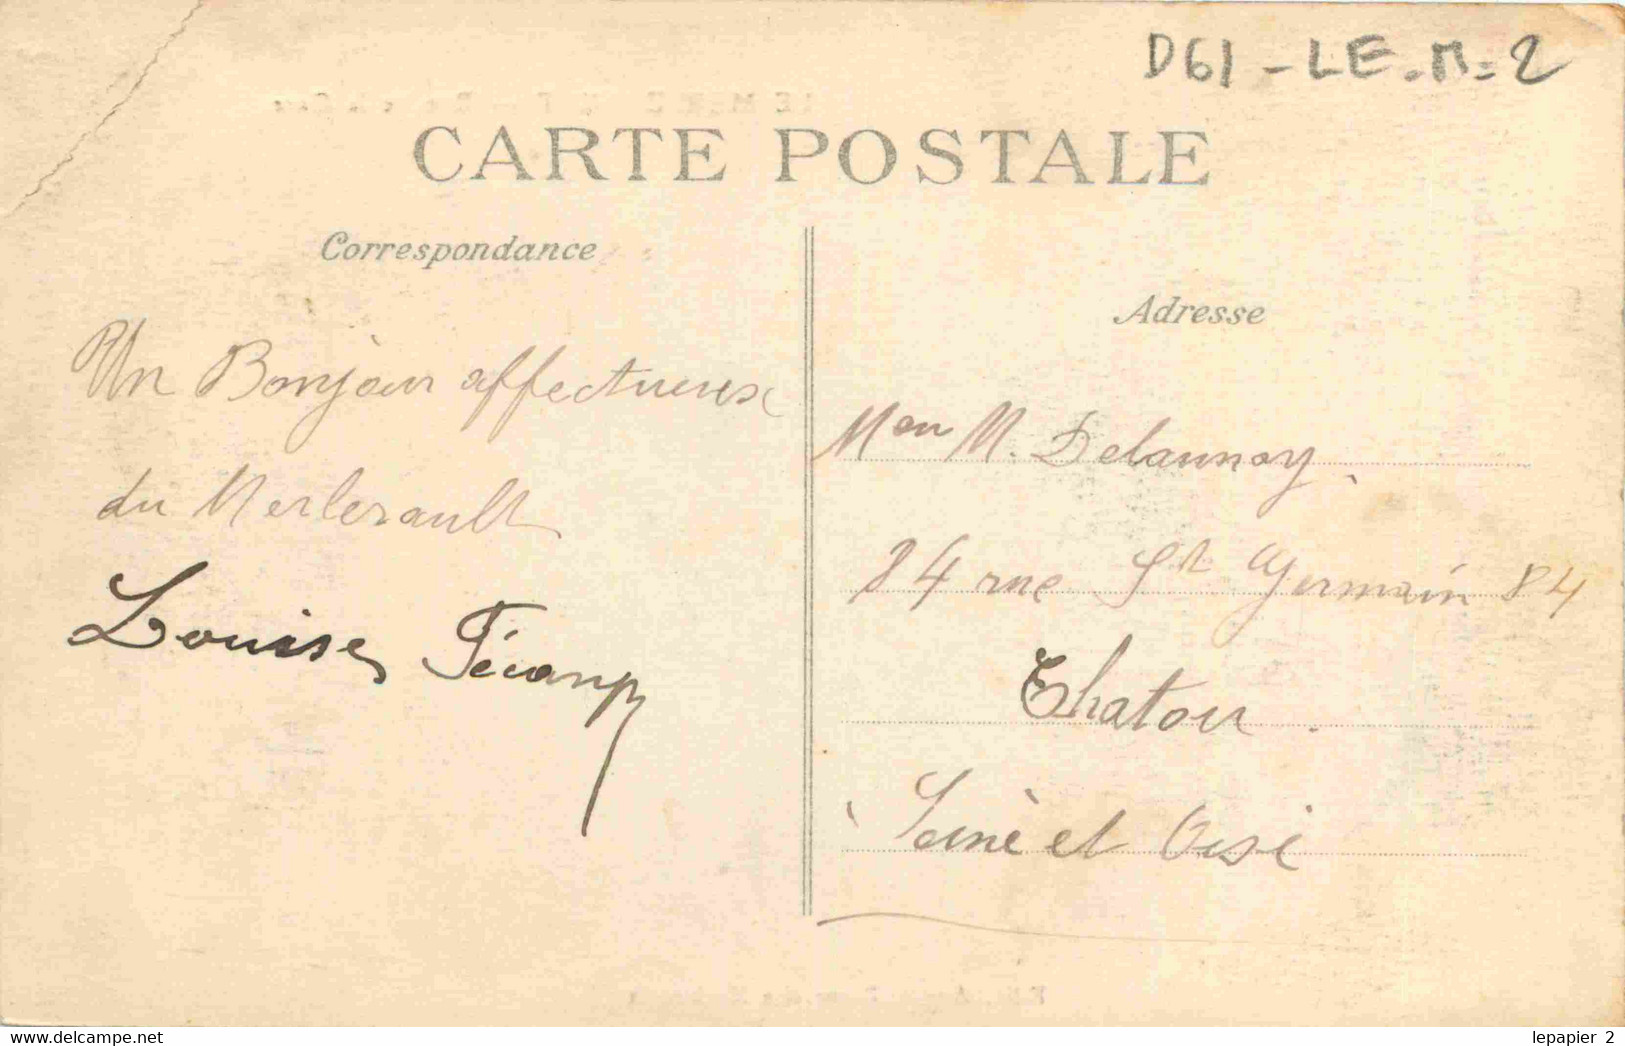 D61 - LE. M. 2
CARTE POSTALE
Correspondance
Adresse
Un Bonjour affectueux
du Merlerault
Louise Fécamp
M. Delaunay
84 rue St Germain 84
Chatou
Seine et Oise
www.delcampe.net
lepapier 2